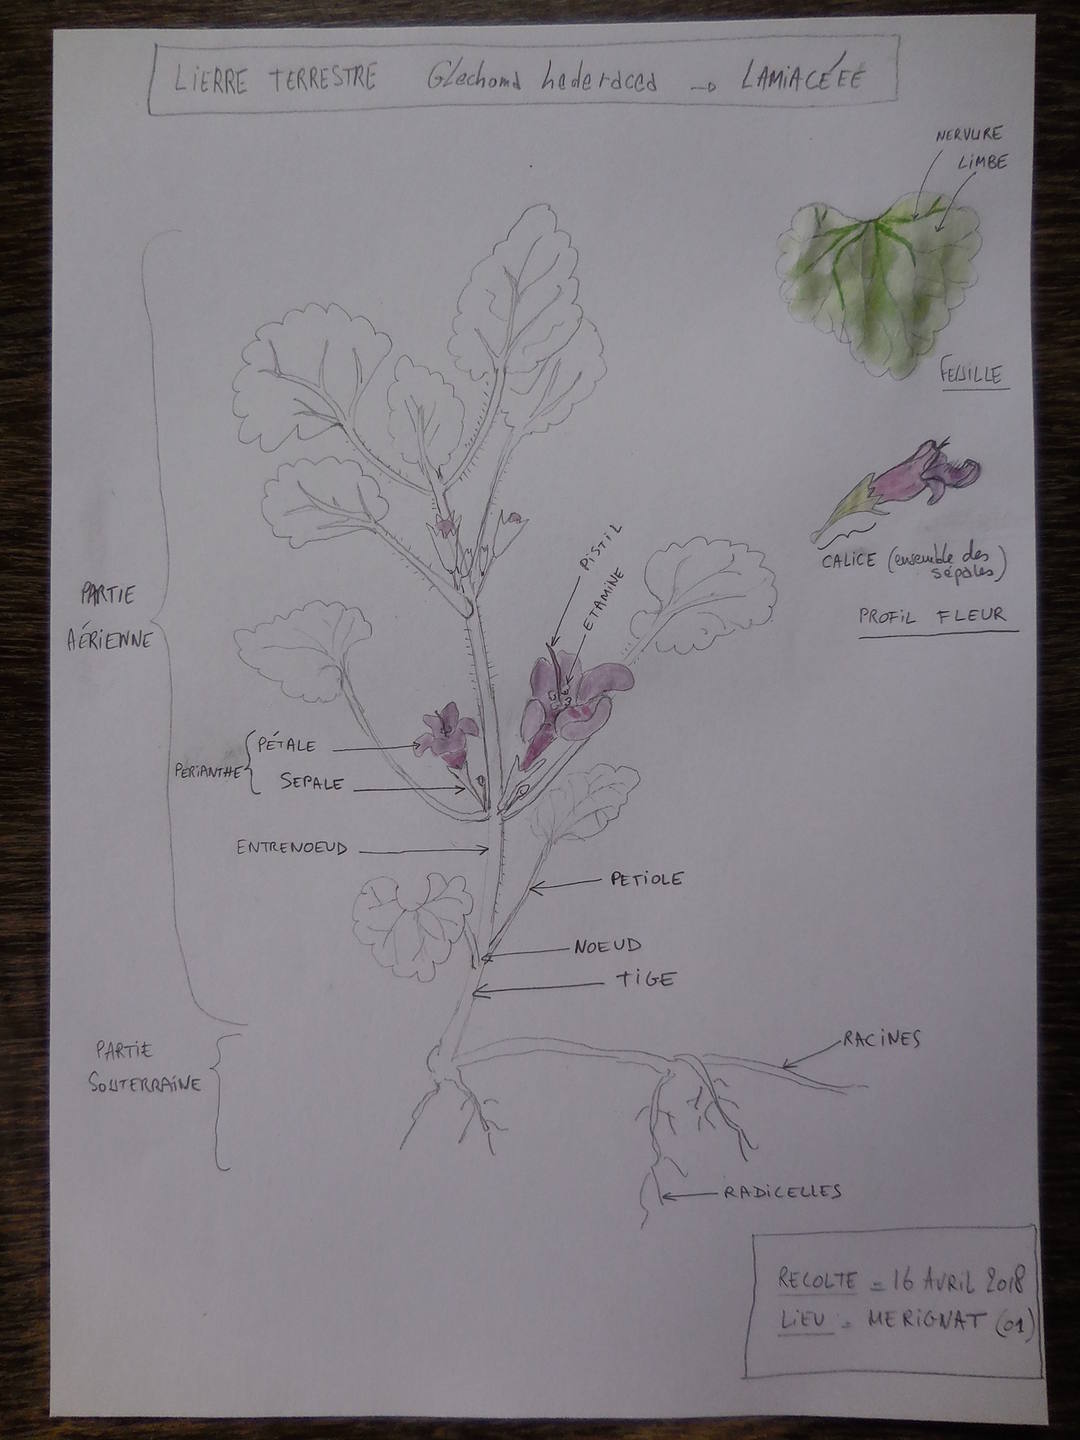 LIERRE TERRESTRE Glechoma hederacea → LAMIACÉEE
NERVURE
LIMBE
FEUILLE
CALICE (ensemble des
sépales)
PROFIL FLEUR
PISTIL
ETAMINE
PARTIE
AÉRIENNE
PERIANTHE
PÉTALE
SEPALE
ENTRENOEUD
PETIOLE
NOEUD
TIGE
PARTIE
SOUTERRAINE
RACINES
RADICELLES
RECOLTE = 16 AVRIL 2018
LIEU = MERIGNAT (01)